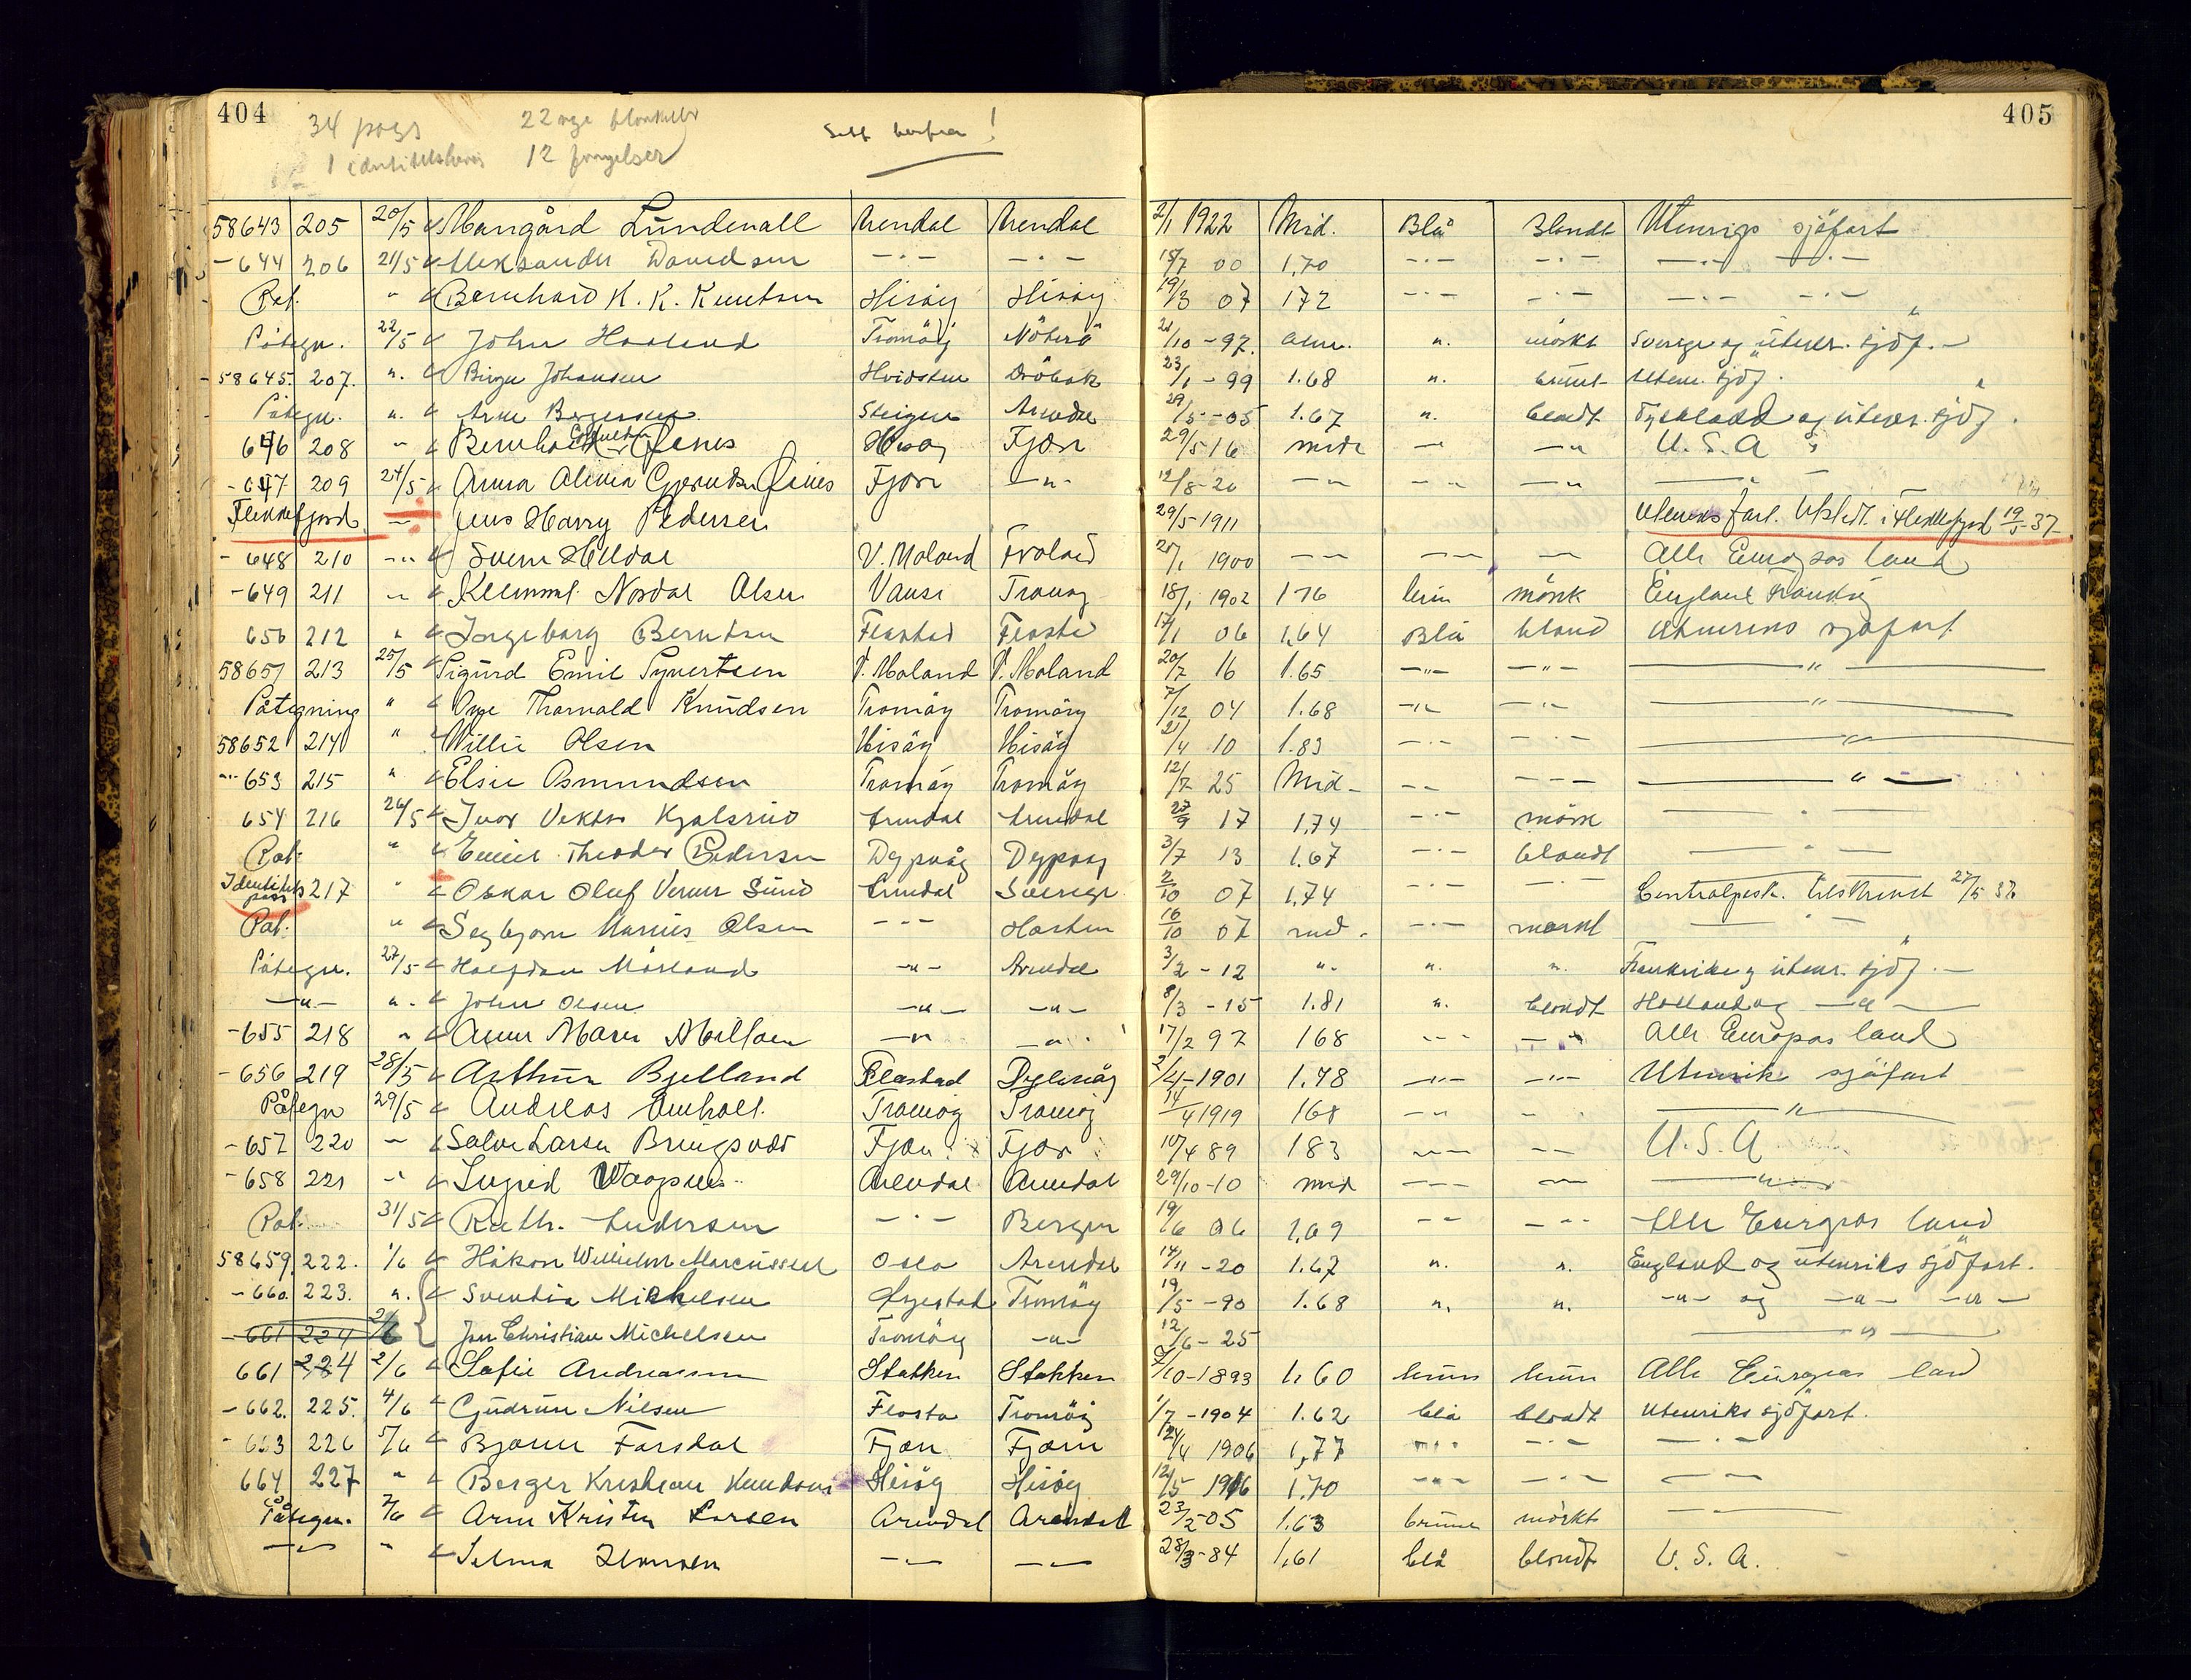 404
405
34 pass 22 nye blanketter
1 12 fornyelser
Sett herfra!
58643 205 20/5 Margård Lundevall Arendal Arendal 2/1 1922 Mid. Blå Blondt Utenrigs sjöfart
-644 206 21/5 Aleksander Davidsen -"- -"- 18/7 00 1,70 -"- -"- -"- -"-
Pat. " Bernhard K. K. Knutsen Hisöy Hisöy 19/3 07 172 -"- -"- -"- -"-
Påtegn. 22/5 John Haaland Tromöy Nöterö 21/10 -97. alm. ". mörkt Sverige og utenr. sjöf. -
58645. 207. ". Birger Johansen Hvidsten Dröbak 23/1 -99 1.68 ". brunt Utenr. sjöf.
Påtegn. ". Arne Bergersen Steigen Arendal 29/5 -05 1.67 ". blondt Tyskland og utenr. sjöf.
646 208 " Bernhard Jenis Hisöy Fjære 29/5 16 midl - -" U.S.A
-647 209 24/5 Anna Alenia Gjerulsen Jenis Fjære -"- 12/8-20 -- -- -" -"-
Flekkefjord -"- Jens Harry Pedersen 29/5-1911 Utenriks fart. Utstedt i Flekkefjord 19/5-37
-648 210 -"- Svein Heldal V. Moland Froland 25/1 1900 -- -- - Alle Europas land
-649 211 -"- Klemmet Nordal Olsen Vanse Tromøy 18/1 1902 176 brun mörk England Frankrig
650 212 " Ingeborg Berntsen Flostad Flosta 17/1 06 1,64 Blå blond Utenriks sjøfart
58651 213 25/5 Sigurd Emil Syvertsen V. Moland V. Moland 20/7 16 1.65 -"- -"- -"-
Påtegning " Ove Thorvald Knudsen Tromöy Tromöy 7/12 04 1.68 -"- -"- -"-
58652 214 " Willie Olsen Hisöy Hisöy 21/4 10 1.83 -"- -"- -"-
-"-653 215 " Elsie Osmundsen Tromöy Tromöy 12/7 25 Mid- -- --- -"-
654 216 26/5 Ivar Viktor Kjelsrud Arendal Arendal 27/9 17 1,74 -"- mörk -"-
Pat. " Emil Theodor Pedersen Dypvåg Dypvåg 3/7 13 1.67 -"- blondt -"-
Identitets pass 217 " Oskar Oluf Verner Sund Arendal Sverige 2/10 07 1,74 -"- -"- Centralpassk. tilskrevet 27/5 37
Pat. " Seybjørn Marius Olsen -"- Horten 16/10 07 mid. -"- mørkt -"-
Påtegn. 27/5 Halfdan Mörland -"- Arendal 3/2 -12 ". ". ". Frankrike og utenr. sjöf. -
-"- ". John Olsen -"- -"- 8/3 -15 1.81 ". blondt Holland og -"-
-655 218 " Anne Marie Nilsen -"- -"- 17/2 97 168 --- -"- Alle Europas land
-656 219 28/5 Arthur Bjelland Flostad Dypvåg 2/4-1901 1.78 -"- -"- Utenriks sjöfart
Påtegn 29/5 Andreas Omholt. Tromøy Tromøy 14/4 1919 168 -"- - -"-
-657 220 -"- Salve Larsen Bringsvær Fjære Fjære 10/4 89 183 -"- -- U.S.A
-658 221 -" Ingrid Arendal Arendal 29/10-10 mid --- -- -"-
Pat. 31/5 Ruth Andersen -"- Bergen 19/6 06 1,69 -- --- Alle Europas land
58659. 222. 1/6 Håkon Wilhelm Marcussen Oslo Arendal 14/11 -20 1.67 ". ". England og utenriks sjöfart.
-660. 223. ". Svendia Mickelsen Øyestad Tromöy 19/5 -90 1.68 ". ". -"- og -"- -"-
-661 224 2/6 Jon Christian Michelsen Tromöy -"- 12/6-25 -"-
661 224 2/6 Sofie Andreassen Stokken Stokken 7/10-1893 1,60 brun brun Alle Europas land
-662. 225. 4/6 Gudrun Nilsen Flosta Tromöy 1/7 -1904 1.62 blå blondt Utenriks sjöfart.
-663 226 5/6 Bjarne Farsdal Fjære Fjære 24/4 1906 1,77 -"- -"- -"-
664 227 " Berger Kristian Knudsen Hisöy Hisöy 12/5 1916 1,70 -"- -"- -- --
Påtegn. 7/6 Arne Kristen Larsen Arendal Arendal 23/2-05 1.63 brune mörkt -"-
-"- " Selma Hansen -"- -"- 28/3-84 1,61 blå blondt U.S.A.